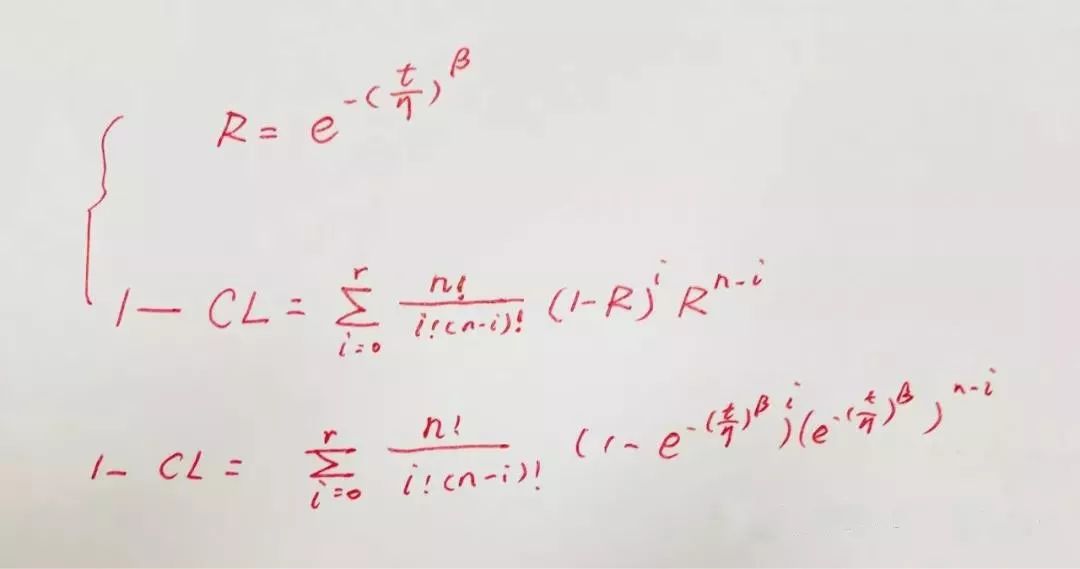 R = e^{-(\frac{t}{η})^β}
1 - CL = \sum_{i=0}^{r} \frac{n!}{i!(n-i)!} (1-R)^i R^{n-i}
1 - CL = \sum_{i=0}^{r} \frac{n!}{i!(n-i)!} (1 - e^{-(\frac{t}{η})^β})^i (e^{-(\frac{t}{η})^β})^{n-i}